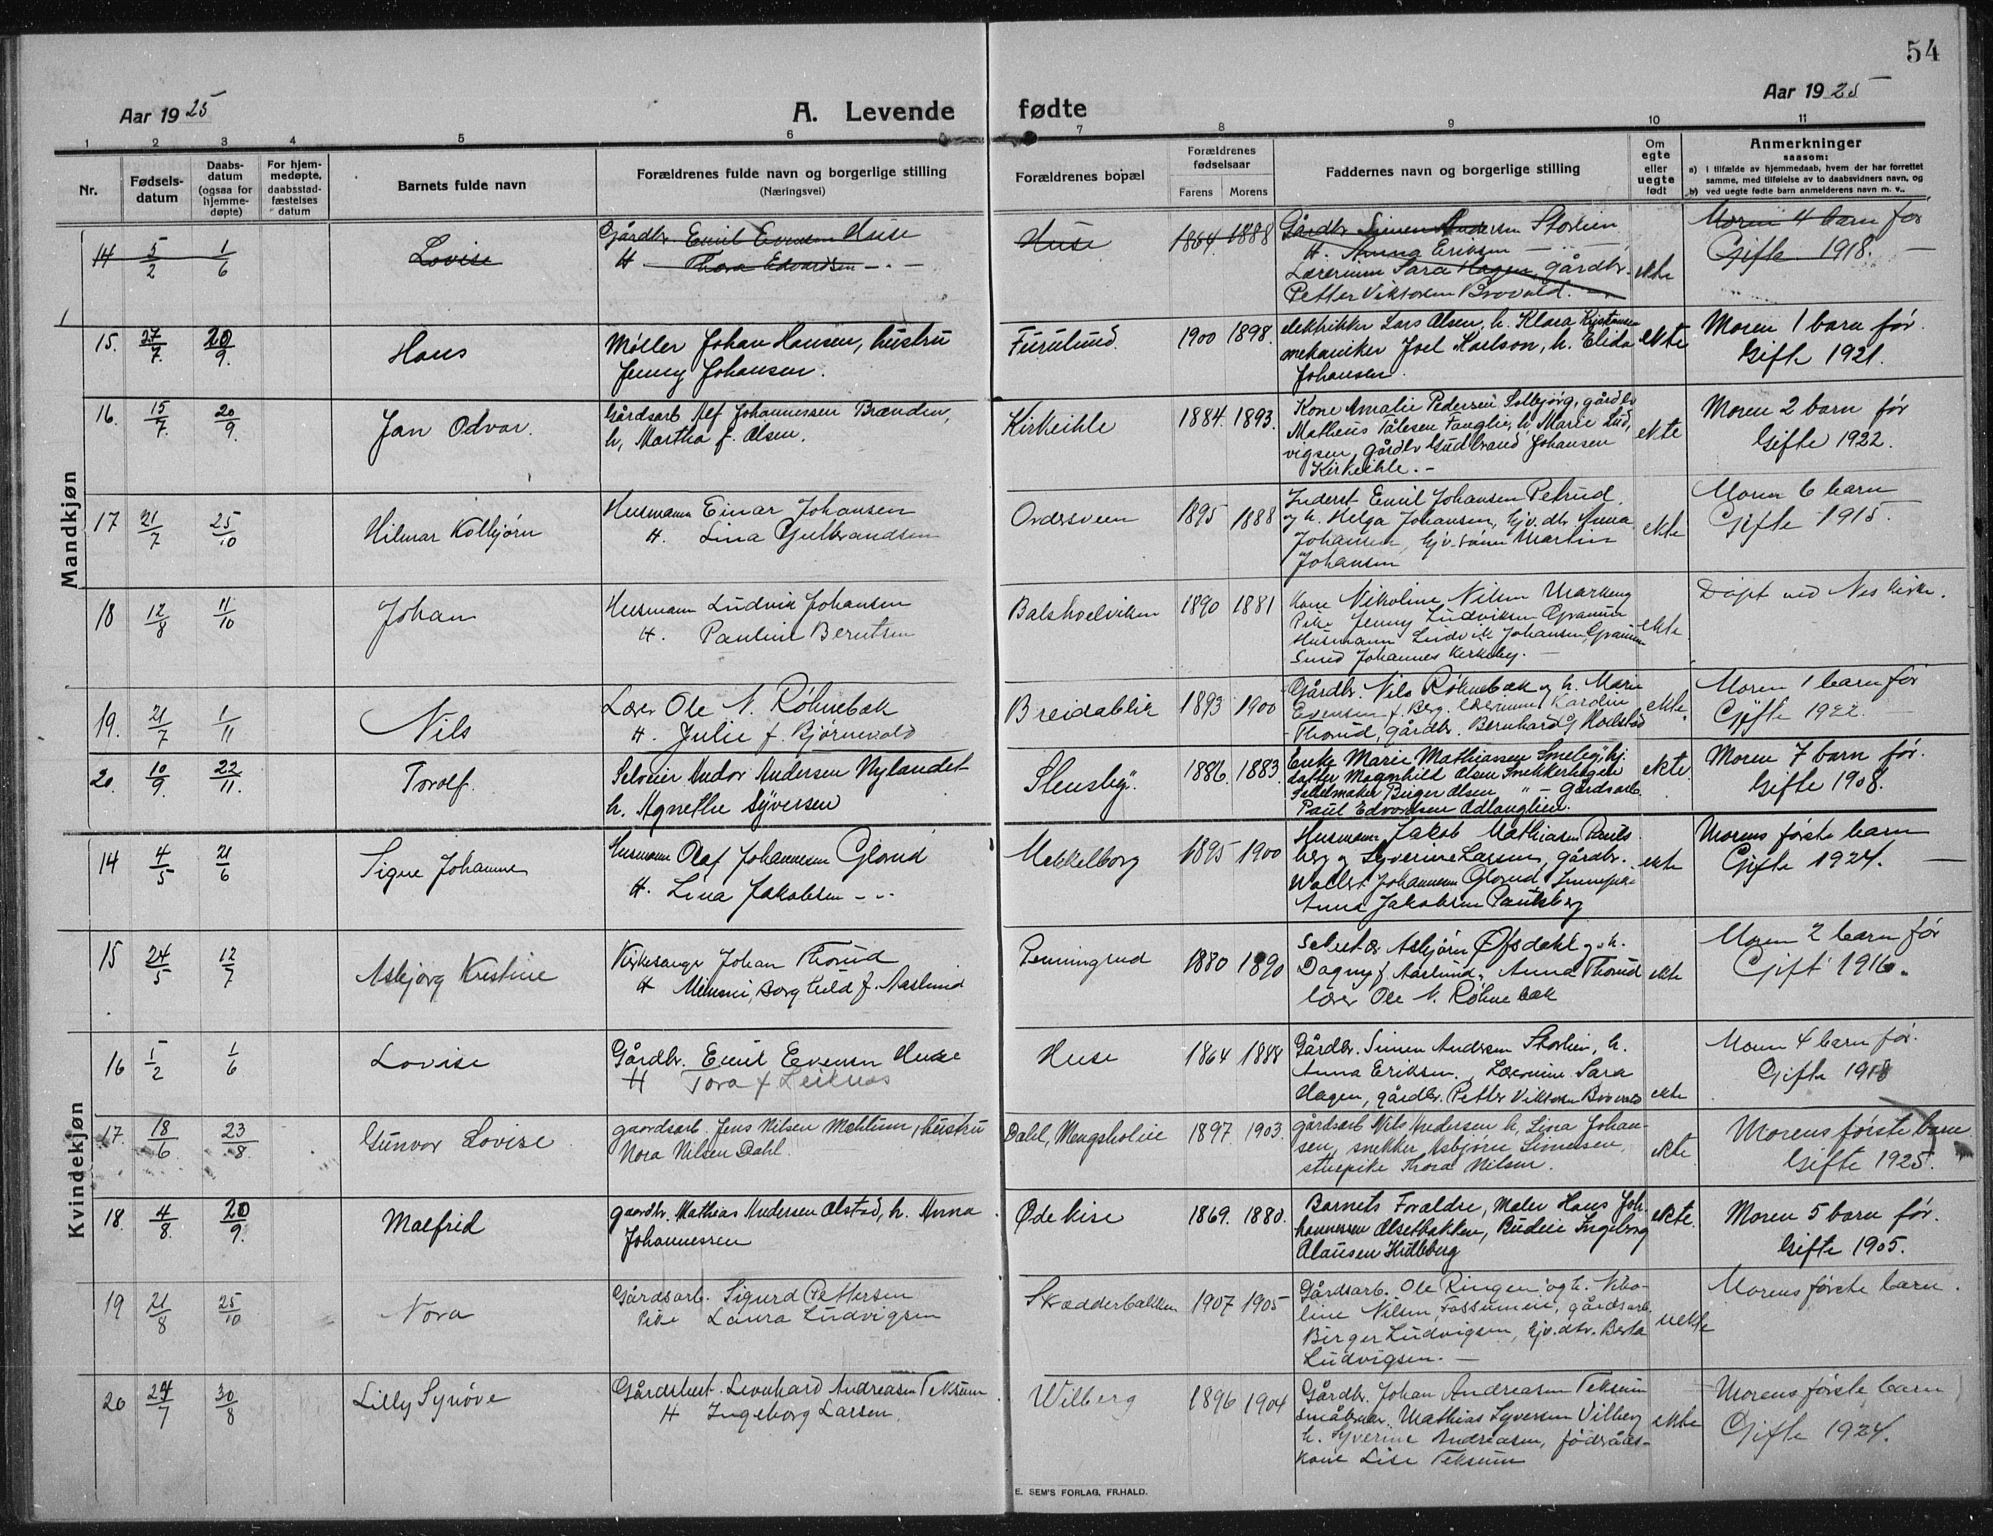 54
Aar 1925
A. Levende fødte
Aar 1925
1 2 3 4 5 6 7 8 9 10 11
Nr.
Fødsels-
datum
Daabs-
datum
(ogsaa for
hjemme-
døpte)
For hjem-
medøpte,
daabsstad-
fæstelses
datum
Barnets fulde navn
Forældrenes fulde navn og borgerlige stilling
(Næringsvei)
Forældrenes bopæl
Forældrenes
fødselsaar
Farens Morens
Faddernes navn og borgerlige stilling
Om
egte
eller
uegte
født
Anmerkninger
saasom:
a) I tilfælde av hjemmedaab, hvem der har forrettet
samme, med tilføielse av to daabsvidners navn, og
b) ved uegte fødte barn anmelderens navn m. v..
Mandkjøn
14 5/2 1/6 Lovise
Gårdbr. Emil Evensen Huse
H Thora Edvardsen - -
Huse 1864 1888
Gårdbr Simen Andersen Storlien
H. Anna Eriksen
Lærerinne Sara Hagen, gårdbr.
Petter Viktorsen Brovold.
ekte
Moren 4 barn før
Gifte 1918.
15. 27/7 20/9. Hans
Møller Johan Hansen, hustru
Jenny Johansen.
Furulund 1900 1898.
elektriker Lars Olsen, h. Klara Kristiansen
mekaniker Joel Karlson, h. Elida
Johansen.
ekte
Moren 1 barn før.
Gifte 1921.
16. 15/7. 20/9. Jan Odvar.
Gårdsarb Alf Johannessen Brænden,
h, Martha f. Olsen.
Kirkeihle 1884. 1893.
Kone Amalie Pedersen Solbjørg, gårdbr
Matheus Tålesen Fanglie, h. Marie Lud,
vigsen, gårdbr Gudbrand Johansen
Kirkeihle. -
ekte
Moren 2 barn før
Gifte 1922.
17 21/7 25/10 Hilmar Kolbjørn
Husmann Einar Johansen
H. Lina Gulbrandsen
1895 1888
Inderst Emil Johansen Petrud
og h. Helga Johansen, hjv. dtr Anna
Johansen, hjv. sønn Martin
Johansen
ekte
Moren 6 barn
Gifte 1915.
18 12/8 11/10 Johan
Husmann Ludvik Johansen
H. Pauline Berntsen
Balshoelviken 1890 1881
Kone Nikoline Nilsen
Pike Jenny Ludviksen Granum
Husmann Ludvik Johansen, Granum
Svend Johannes Kirkeby. -
ekte
Døpt ved Nes kirke.
19. 21/7 1/11 Nils
Lærer Ole N. Røhnebæk
H. Julie f. Bjørnevold
Breidablik 1893 1900
Gårdbr. Nils Røhnebæk og h. Marie
Evensen f. Berg. Lærerinne Karoline
Thorud, gårdbr. Bernhard
ekte.
Moren 1 barn før
Gifte 1922.
20. 10/9. 22/11. Torolf.
Andor Andersen Nylandet
h. Agnethe Syversen
Stensby 1886. 1883.
Enke Marie Mathiassen Smeby, hj.
datter Magnhild Olsen Snekkerhagen
Salmaker Birger Olsen " - gårdsarb.
Paul Edvardsen
ekte.
Moren 7 barn før.
Gifte 1908.
Kvindekjøn
14 4/5 21/6 Signe Johanne
Husmann Olaf Johannesen Glorud
H. Lina Jakobsen - -
Mekkelborg 1895 1900
Husmann Jakob Mathiasen Pauls
berg og Syverine Larsen, gårdbr.
Johannesen Glorud,
Anna Jakobsen Paulsberg
ekte
Morens første barn
Gifte 1924. -
15 24/5 12/7 Asbjørg Kristine
Kirkesanger Johan Thorud
H Mimmi, Borghild f. Aaslund
Penningrud 1880 1890
Asbjørn Ofsdahl og h.
Dagny f. Aaslund, Anna Thorud
lærer Ole N. Røhnebæk
ekte
Moren 2 barn før
Gift 1916.
16 5/2 1/6 Lovise
Gårdbr. Emil Evensen Huse
H Tora f Leiknes
Huse 1864 1888
Gårdbr. Simen Andersen Storlien, h.
Anna Eriksen. Lærerinne Sara
Hagen, gårdbr. Petter Viktorsen Brovold
ekte
Moren 4 barn før.
Gifte 1918
17. 18/6 23/8. Gunvor Lovise.
gaardsarb. Jens Nilsen Mehlum, hustru
Nora Nilsen Dahl.
Dahl, Mengsholie 1897. 1903.
gårdsarb Nils Andersen h, Lina Johan-
sen, snekker Asbjørn Simensen,
stuepike Thora Nilsen.
ekte.
Morens første barn
Gifte 1925.
18. 4/8. 20/9. Malfrid
gaardbr. Mathias Andersen Alstad, h. Anna
Johannessen
Ødekise 1869. 1880.
Barnets Foraldre, Maler Hans Joh-
hannessen Olsetbakken, Budeie Ingeborg
Klausen Hulleberg
ekte.
Moren 5 barn før.
Gifte 1905.
19 21/8 25/10 Nora
Gårdsarb. Sigurd Pettersen
Pike Laura Ludvigsen
Skrædderbakken 1907 1905
Gårdsarb. Ole Ringen og h. Niko-
line Nilsen, Fossumeie, gårdsarb.
Birger Ludvigsen, hjv. dtr. Berta
Ludvigsen. -
uekte
Morens første barn.
20 24/7 30/8 Lilly Synøve
Leonhard Andreasen Teksum
H Ingeborg Larsen.
Wilberg 1896 1904
Gårdbr. Johan Andreasen Teksum
Mathias Syversen Vilberg
h. Syverine Andreasen, fødråds-
kone Lise Teksum
ekte
Morens første barn
Gifte 1924.
E. SEM'S FORLAG, FR.HALD.